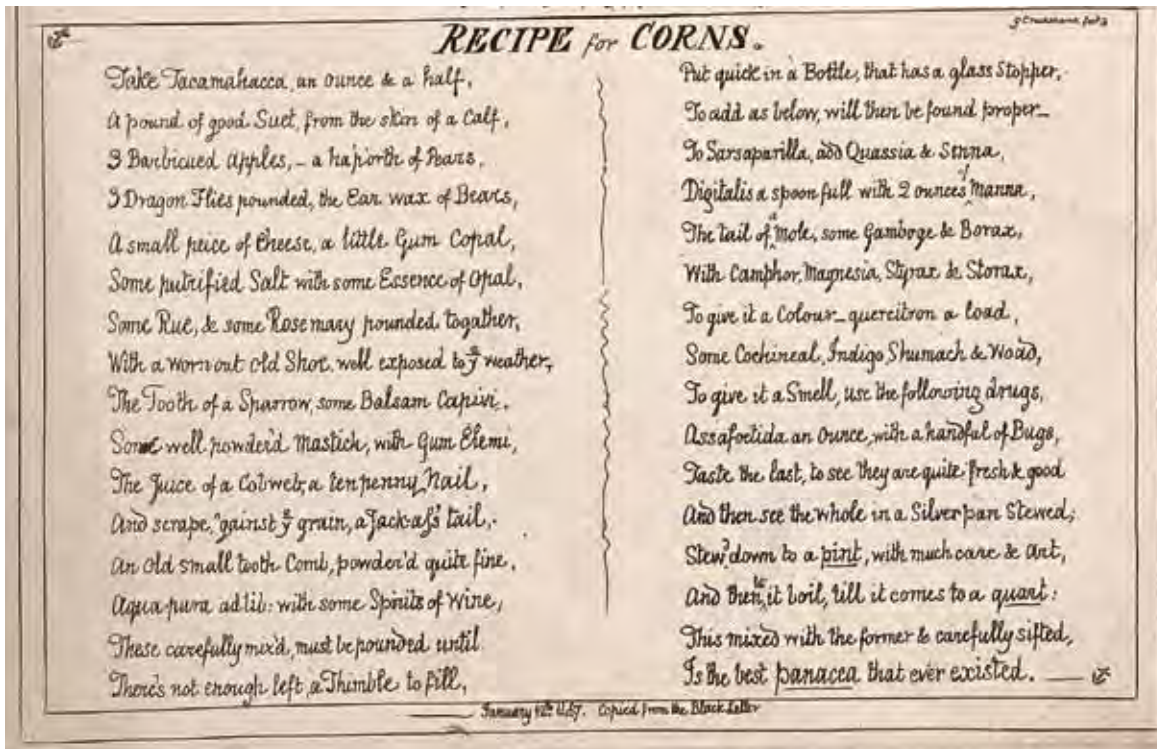 RECIPE for CORNS.
Take Tacamahacca, an ounce & a half,
A pound of good Suet, from the skin of a Calf,
3 Barbicued Apples, - a hap'orth of Pears,
3 Dragon Flies pounded, the Ear wax of Bears,
A small peice of Cheese, a little Gum Copal,
Some putrified Salt with some Essence of Opal,
Some Rue, & some Rosemary pounded togather,
With a worn out old Shoe, well exposed to ye weather,
The Tooth of a Sparrow, some Balsam Capivi,
Some well powder'd Mastich, with Gum Elemi,
The Juice of a Cobweb, a tenpenny Nail,
And scrape, 'gainst ye grain, a Jack-aſs's tail,
An Old small tooth Comb, powder'd quite fine,
Aqua pura ad lib: with some Spirits of Wine,
These carefully mix'd, must be pounded until
There's not enough left, a Thimble to fill,
Put quick in a Bottle, that has a glass Stopper,
To add as below, will then be found proper_
To Sarsaparilla, add Quassia & Senna,
Digitalis a spoon full with 2 ounces of Manna,
The tail of a Mole, some Gamboge & Borax,
With Camphor, Magnesia, Styrax & Storax,
To give it a Colour_ quercitron a load,
Some Cochineal, Indigo, Shumach & Woad,
To give it a Smell, use the following drugs,
Assafoetida an ounce, with a handful of Bugs,
Taste the last, to see they are quite fresh & good
And then see the whole in a Silver pan Stewed;
Stew'd down to a pint, with much care & Art,
And then, let it boil, till it comes to a quart:
This mixed with the former & carefully sifted,
Is the best panacea that ever existed.
Copied from the Black Letter